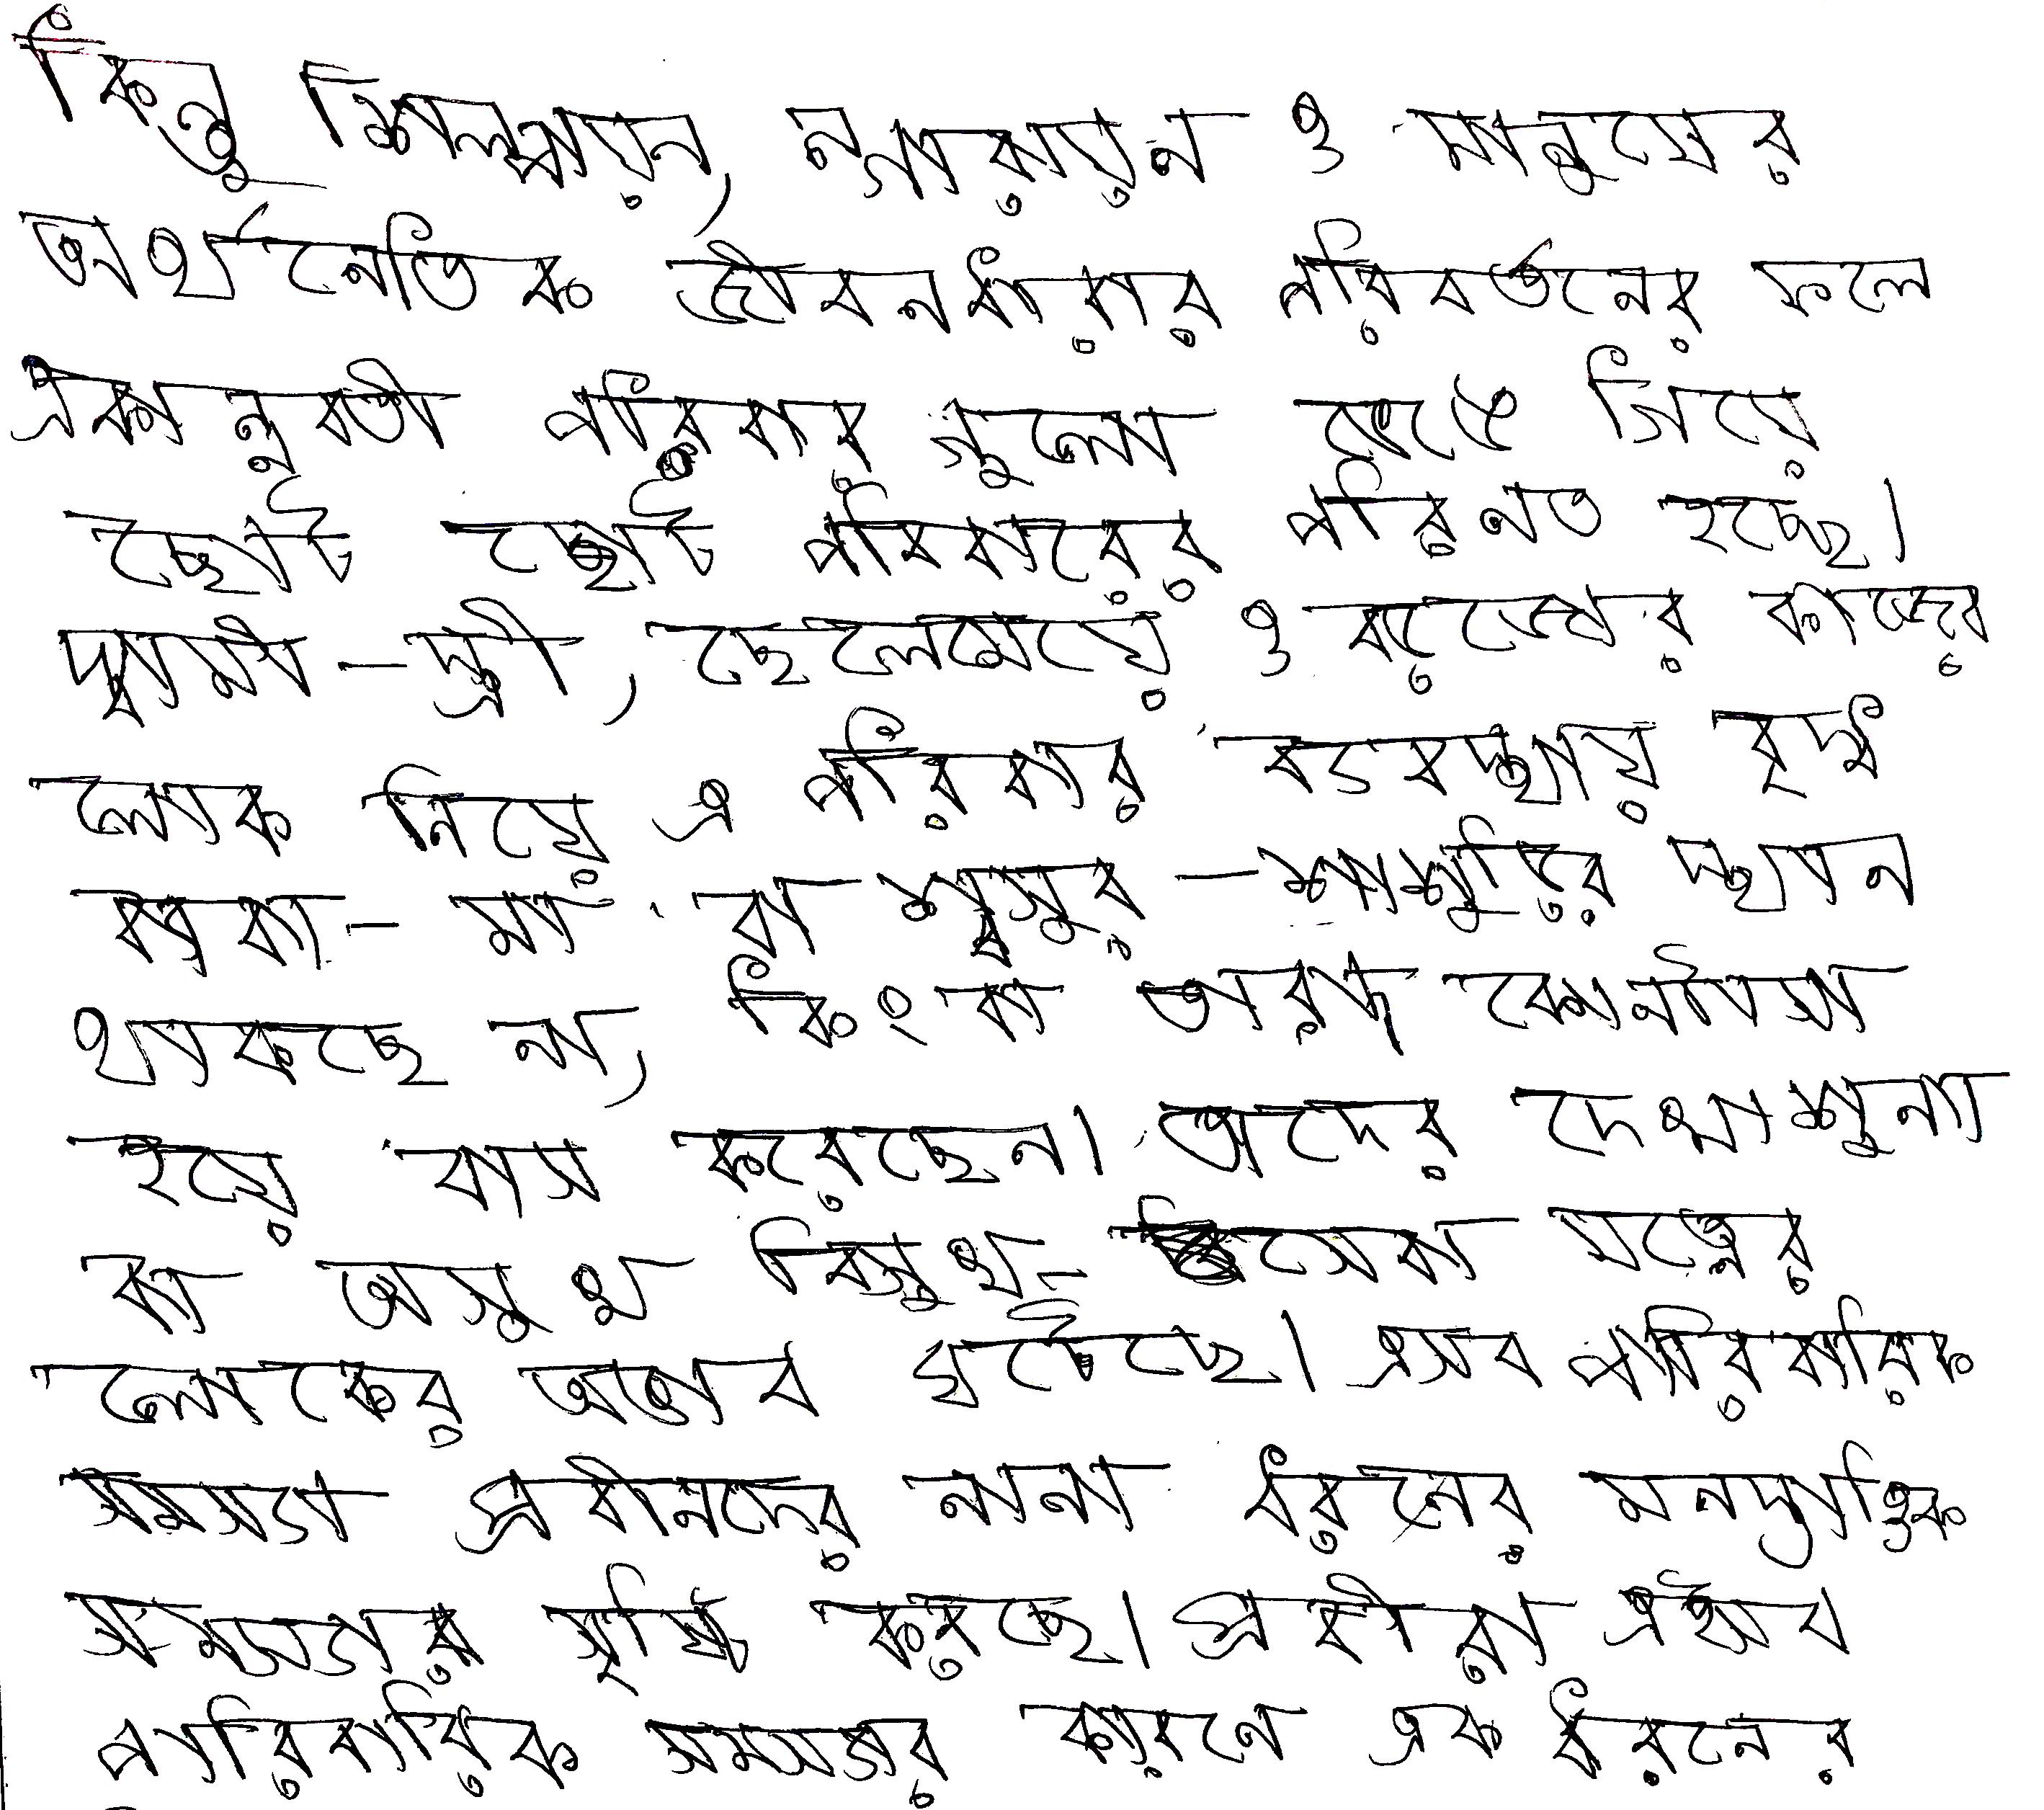 কিন্তু শিল্পায়ন, নগরায়ন ও মানুষের
অর্থনৈতিক জীবনধারার পরিবর্তনের ফলে
একান্নবর্তী পরিবার গুলো ভেঙে গিয়ে
ছোট ছোট পরিবারের পরিনত হচ্ছে।
স্বামী-স্ত্রী, ছেলেমেয়ে ও কাজের
লোক নিয়ে এ পরিবার ব্যবস্থায় বৃদ্ধ
বাবা-মা বা শ্বশুর-শাশুড়ির স্থান
থাকছে না, কিংবা তারা কোনঠাসা
হয়ে বাস করেছেন। তাদের দেখাশুনা
বা অসুখ বিসুখ- সেবা যত্নের
লোকের অভাব ঘটেছে। এসব পারিবারিক
সমস্যা প্রবীনদের নানা ধরনের মনস্তাত্ত্বিক
সমস্যার সৃষ্টি করছে। প্রবীরা এইসব
পারিবারিক সমস্যার কারনে এক ধরনের